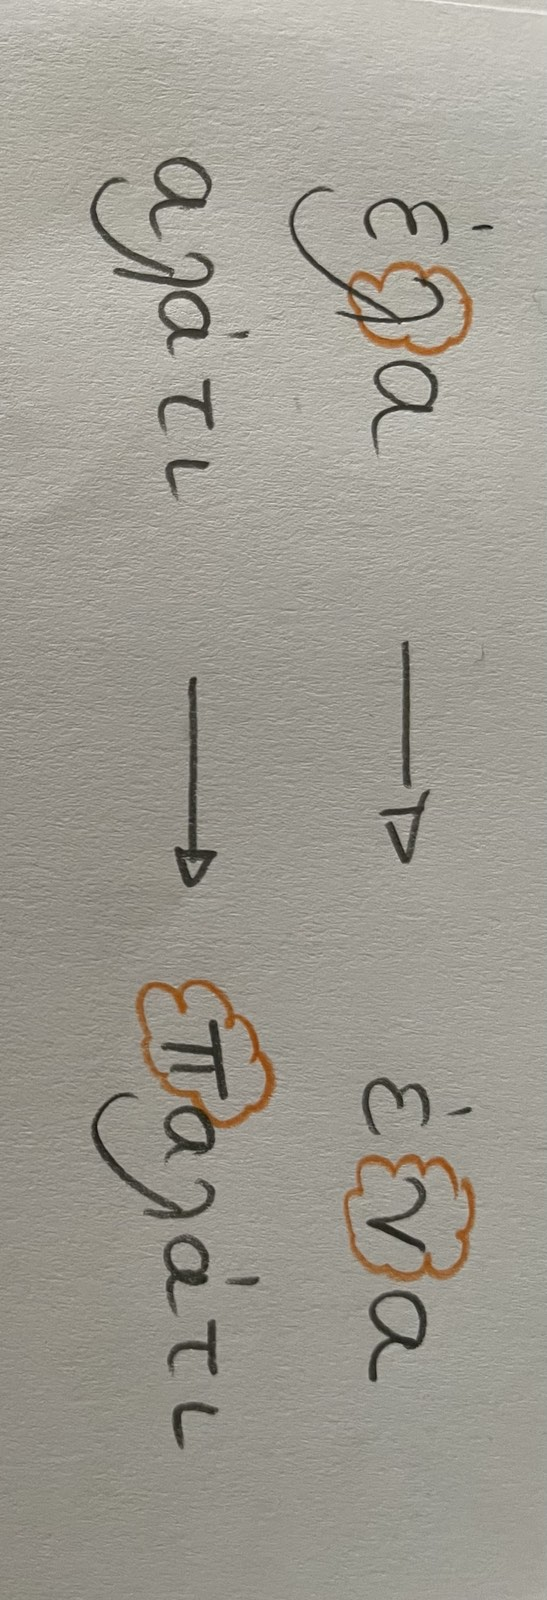 έλα → ένα
αλάτι → παλάτι